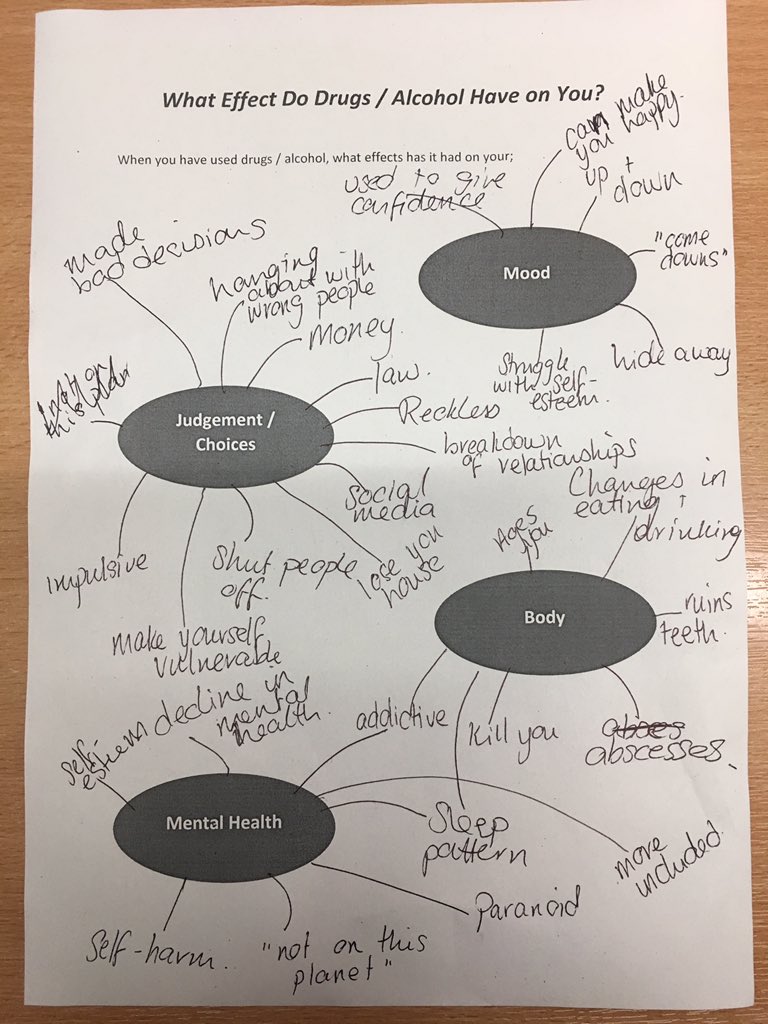 What Effect Do Drugs / Alcohol Have on You?
When you have used drugs / alcohol, what effects has it had on your;
Mood
used to give
confidence
can make
you happy.
up +
down
"come
downs"
hide away
struggle
with self-
esteem.
Judgement /
Choices
made
bad decisions
hanging
about with
wrong people
money.
law.
Reckless
breakdown
of relationships
social
media
lose you
house
Shut people
off.
make yourself
vulnerable
impulsive
Body
Ages
you
Changes in
eating +
drinking
ruins
teeth.
abscesses.
Kill you
addictive
Sleep
pattern
Mental Health
self-
esteem
decline in
mental
health.
more
included
Paranoid
"not on this
planet"
Self-harm.